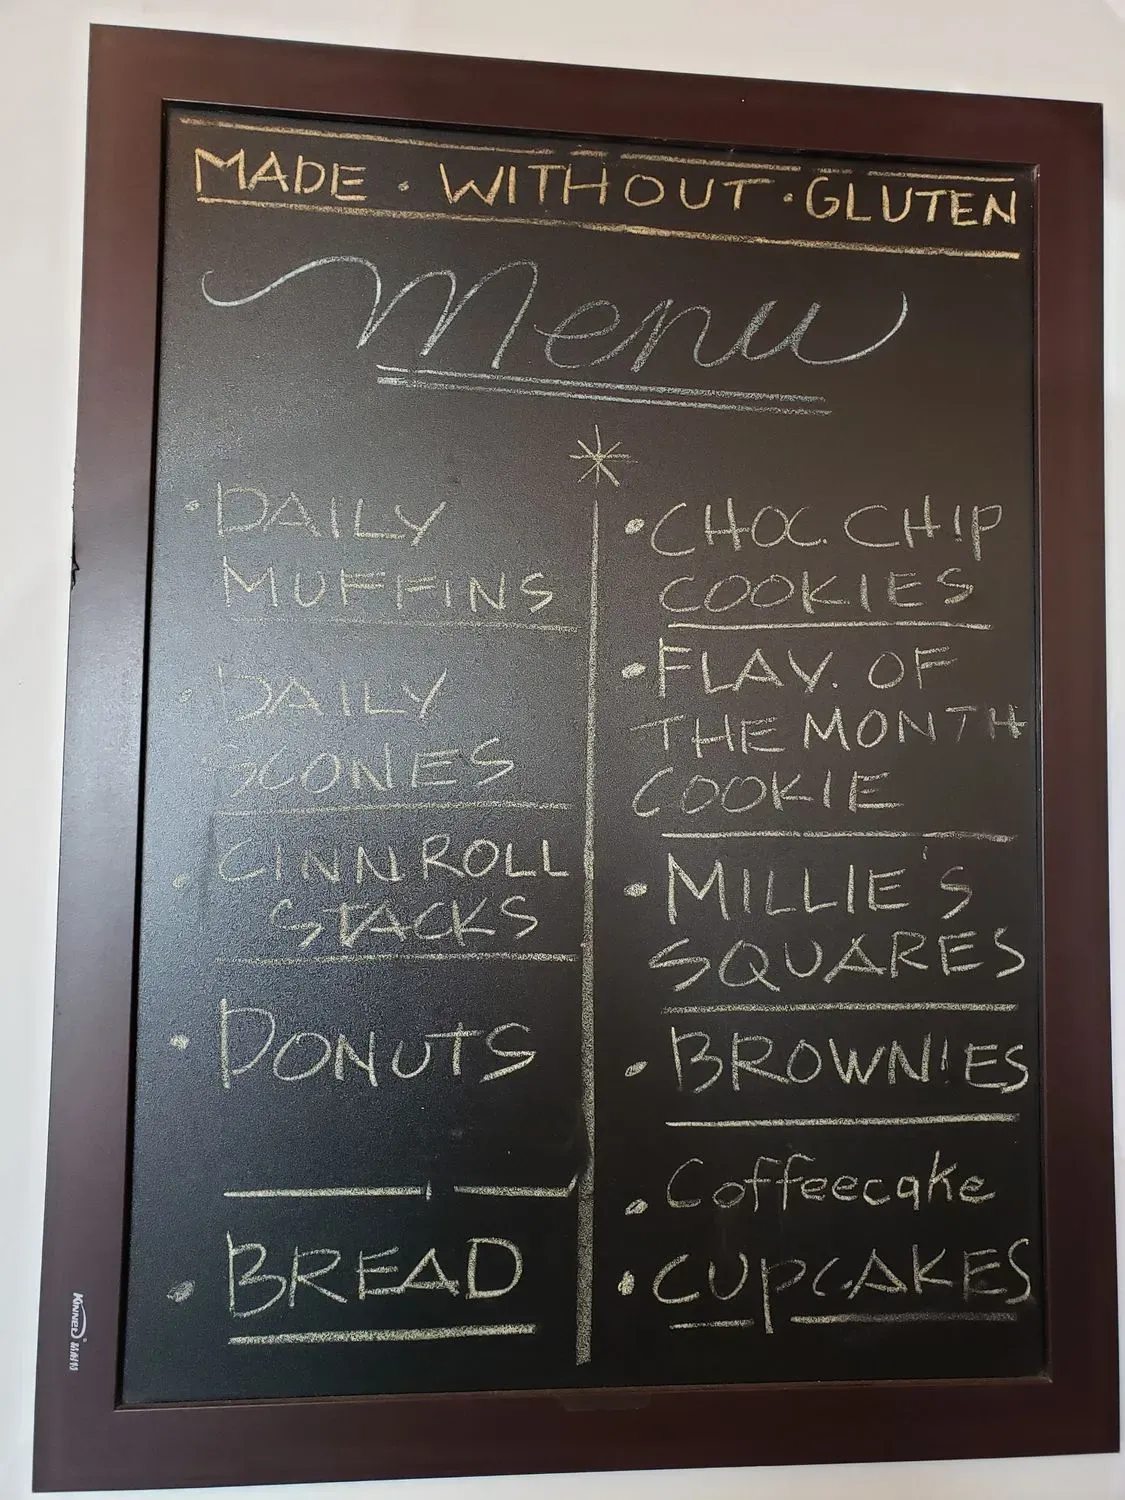 MADE · WITHOUT · GLUTEN
Menu
• DAILY
MUFFINS
• DAILY
SCONES
• CINN ROLL
STACKS
• DONUTS
• BREAD
• CHOC. CHIP
COOKIES
• FLAV. OF
THE MONTH
COOKIE
• MILLIE'S
SQUARES
• BROWNIES
• Coffeecake
• CUPCAKES
KINNED